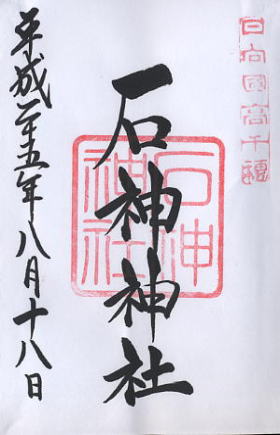 日向國高千穂
石神神社
石神
神社
平成二十五年八月十八日